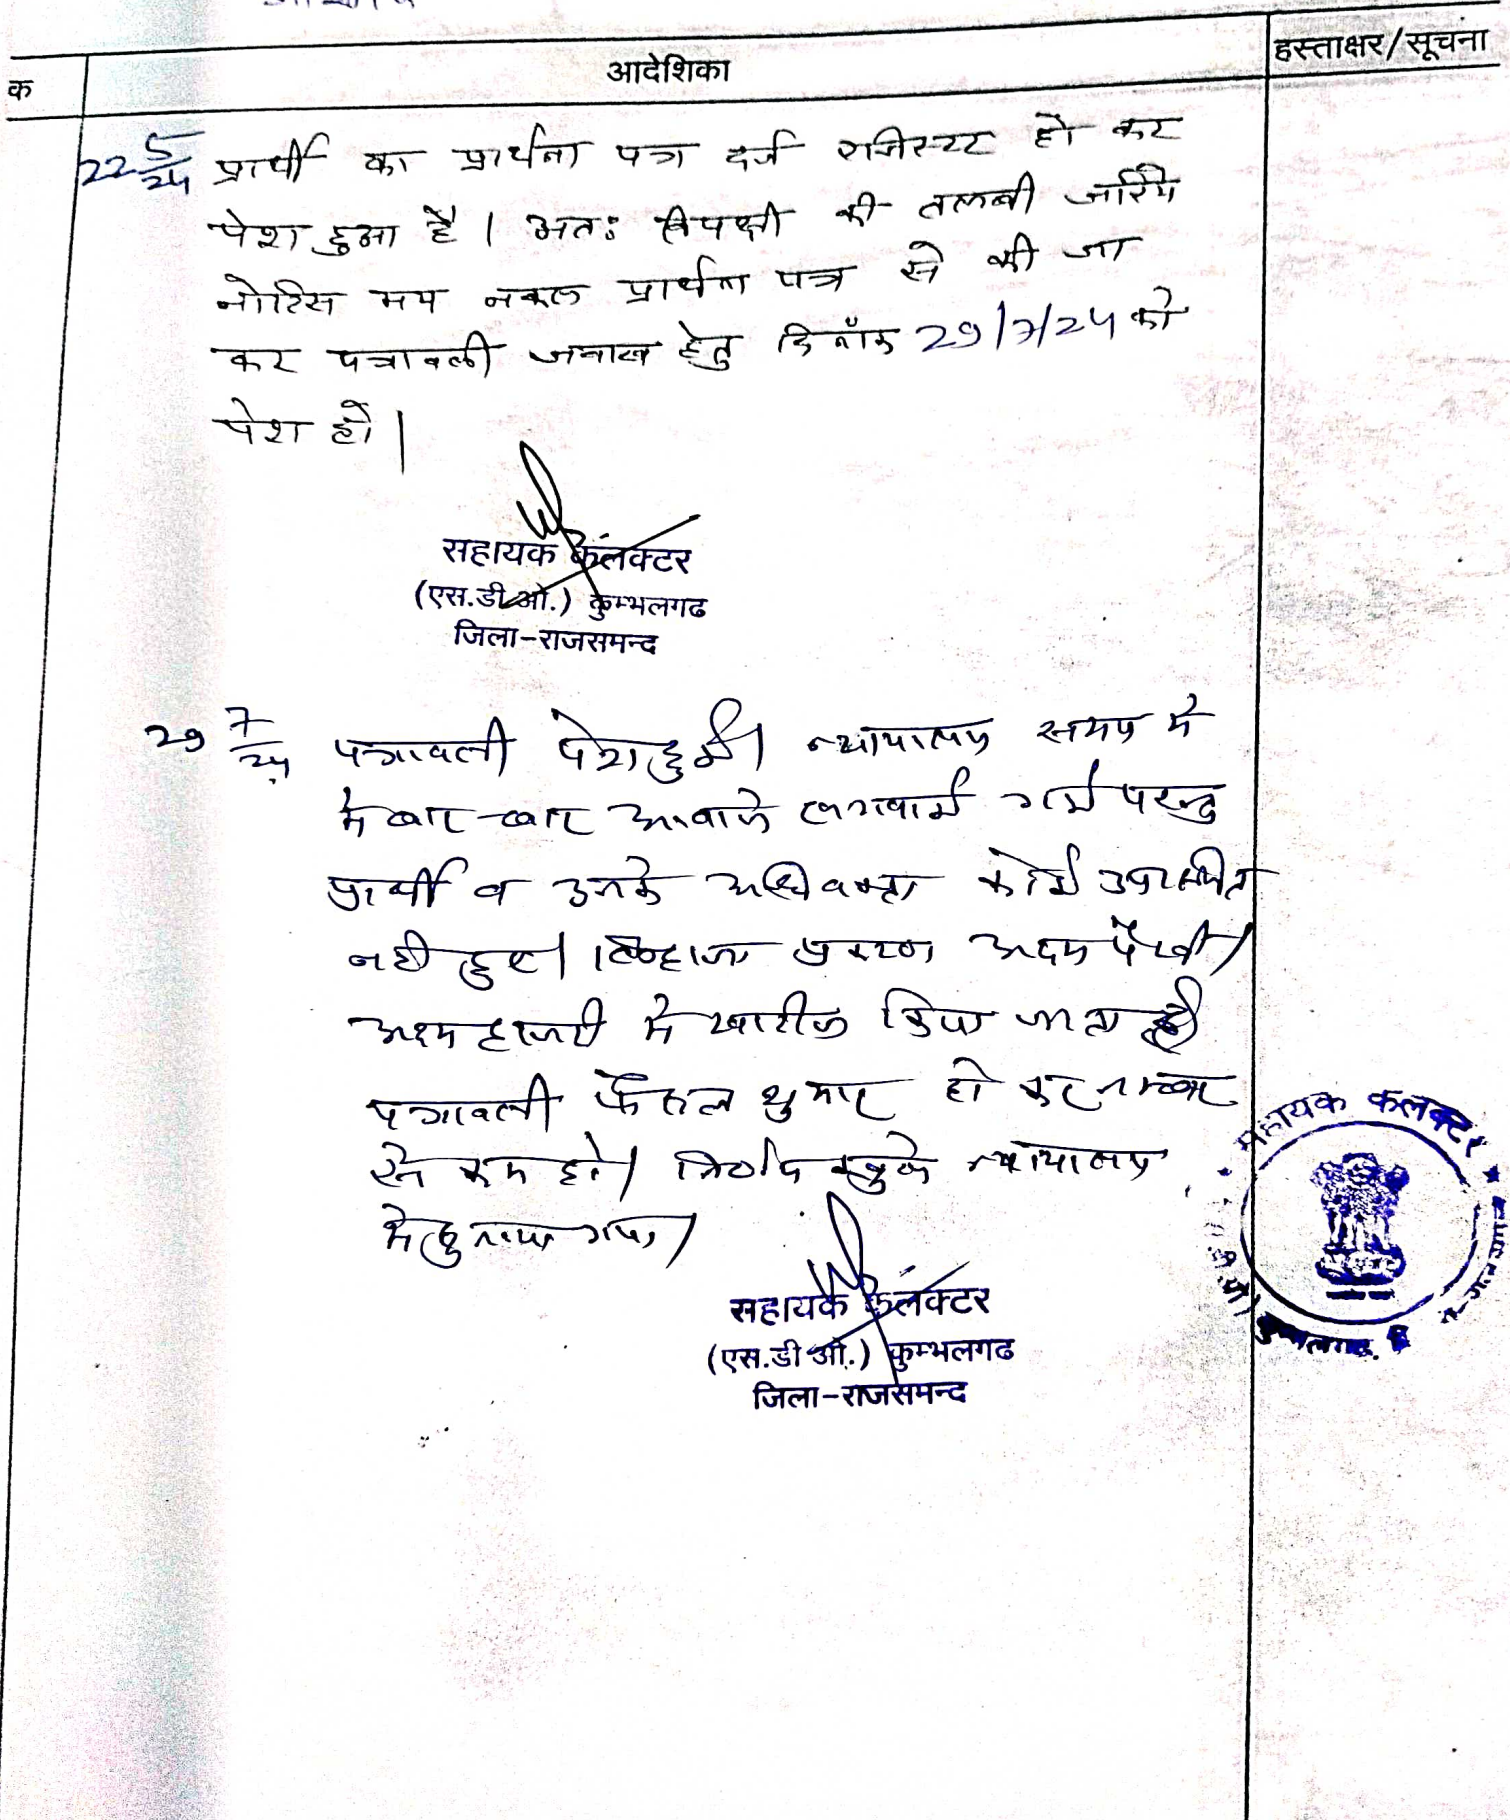 आदेशिका
हस्ताक्षर/सूचना
क
22 5/24 प्रार्थी का प्रार्थना पत्र दर्ज रजिस्टर हो कर
पेश हुआ है। अतः विपक्षी की तलबी जरिये
नोटिस मय नकल प्रार्थना पत्र से की जा
कर पत्रावली जवाब हेतु दिनाँक 29/7/24 को
पेश हो।
सहायक कलक्टर
(एस.डी.ओ.) कुम्भलगढ
जिला-राजसमन्द
29 7/24 पत्रावली पेश हुई। न्यायालय समय मे
मे बार-बार आवाजे लगवाई गई परन्तु
प्रार्थी व उनके अधिवक्ता कोई उपस्थित
नही हुए। लिहाजा प्रकरण अदम पैरवी/
अदम हाजरी मे खारीज किया जाता है।
पत्रावली फैसल शुमार हो कर नम्बर
से कम हो। निर्णय खुले न्यायालय
मे सुनाया गया।
सहायक कलक्टर
(एस.डी.ओ.) कुम्भलगढ
जिला-राजसमन्द
सहायक कलक्टर
कुम्भलगढ